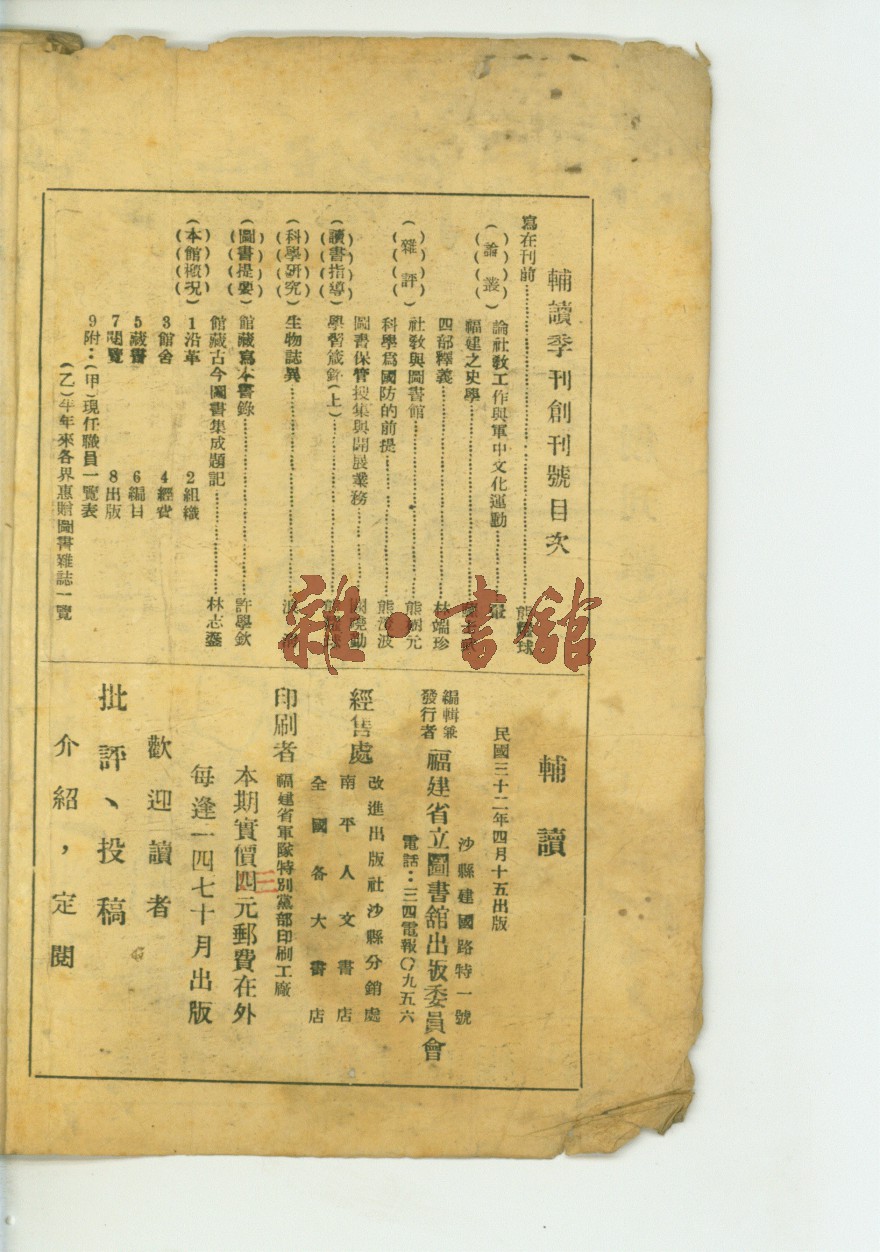 輔讀季刊創刊號目次
寫在刊前……熊 球
(論叢)
論社教工作與軍中文化運動……
福建之史學……
四部釋義……林端珍
(雜評)
社教與圖書館……熊 元
科學爲國防的前提……熊 波
圖書保管搜集與開展業務……
(讀書指導)
學習箴銘(上)……
(科學硏究)
生物誌異……
(圖書提要)
館藏寫本書錄……許學欽
館藏古今圖書集成題記……林志
(本館槪況)
1沿革 2組織
3館舍 4經費
5藏書 6編目
7閱覽 8出版
9附:(甲)現任職員一覽表
(乙)半年來各界惠贈圖書雜誌一覽
輔讀
民國三十二年四月十五出版
沙縣建國路特一號
編輯兼發行者 福建省立圖書舘出版委員會
電話:三四電報〇九五六
經售處
改進出版社沙縣分銷處
南平人文書店
全國各大書店
印刷者 福建省軍隊特別黨部印刷工廠
本期實價四元郵費在外
三
每逢一四七十月出版
歡迎讀者
批評、投稿
介紹,定閱
雜·書舘